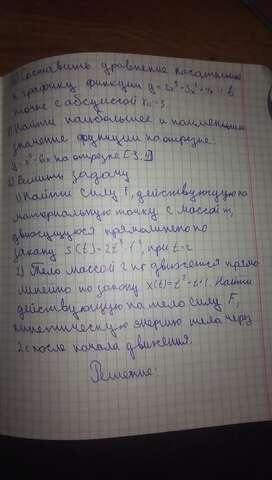 Составить уравнение касательной
к графику функции y=2x³-3x²+4x-1 в
точке с абсциссой x₀=3
Найти наибольшее и наименьшее
значение функции на отрезке:
на отрезке
Решить задачу
1) Найти силу F, действующую на
материальную точку с массой m,
движущуюся прямолинейно по
закону при t=2
2) Тело массой 2 кг движется прямо
линейно по закону Найти
действующую на тело силу F,
кинетическую энергию тела через
2с после начала движения.
Решение: